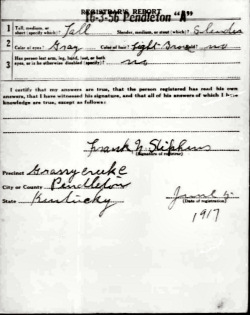 REGISTRAR'S REPORT
16-3-56 Pendleton "A"
1 Tall, medium, or short (specify which)? Tall Slender, medium, or stout (which)? Slender
2 Color of eyes? Gray Color of hair? Light Brown no
3 Has person lost arm, leg, hand, foot, or both eyes, or is he otherwise disabled (specify)? no
I certify that my answers are true, that the person registered has read his own
answers, that I have witnessed his signature, and that all of his answers of which I have
knowledge are true, except as follows:
Frank N Stephens
(Signature of registrar)
Precinct Grassy creek
City or County Pendleton
State Kentucky
June 5
(Date of registration)
1917